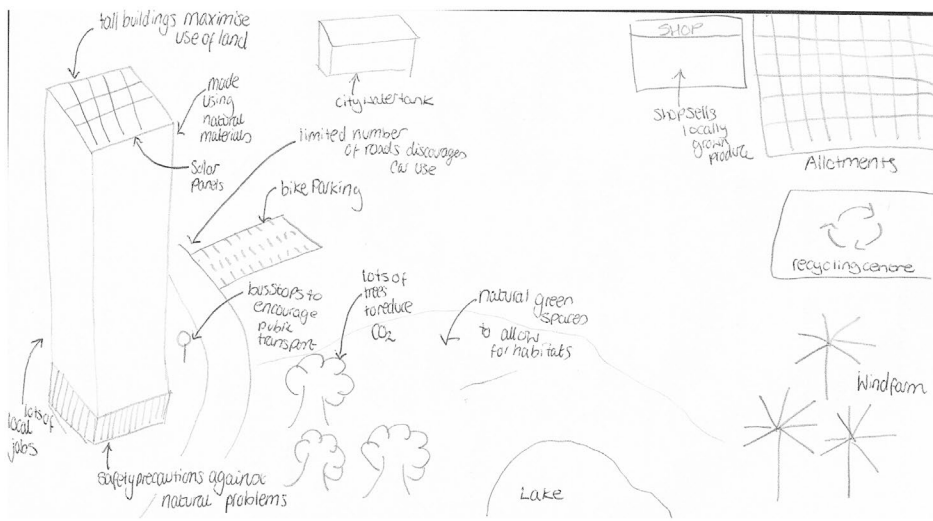 tall buildings maximise
use of land
made
using
natural
materials
solar
panels
city water tank
limited number
of roads discourages
car use
bike parking
SHOP
shop sells
locally
grown
produce
Allotments
recycling centre
bus stops to
encourage
public
transport
lots of
trees
to reduce
CO2
natural green
spaces
to allow
for habitats
Wind farm
lots of
local
jobs
safety precautions against
natural problems
Lake